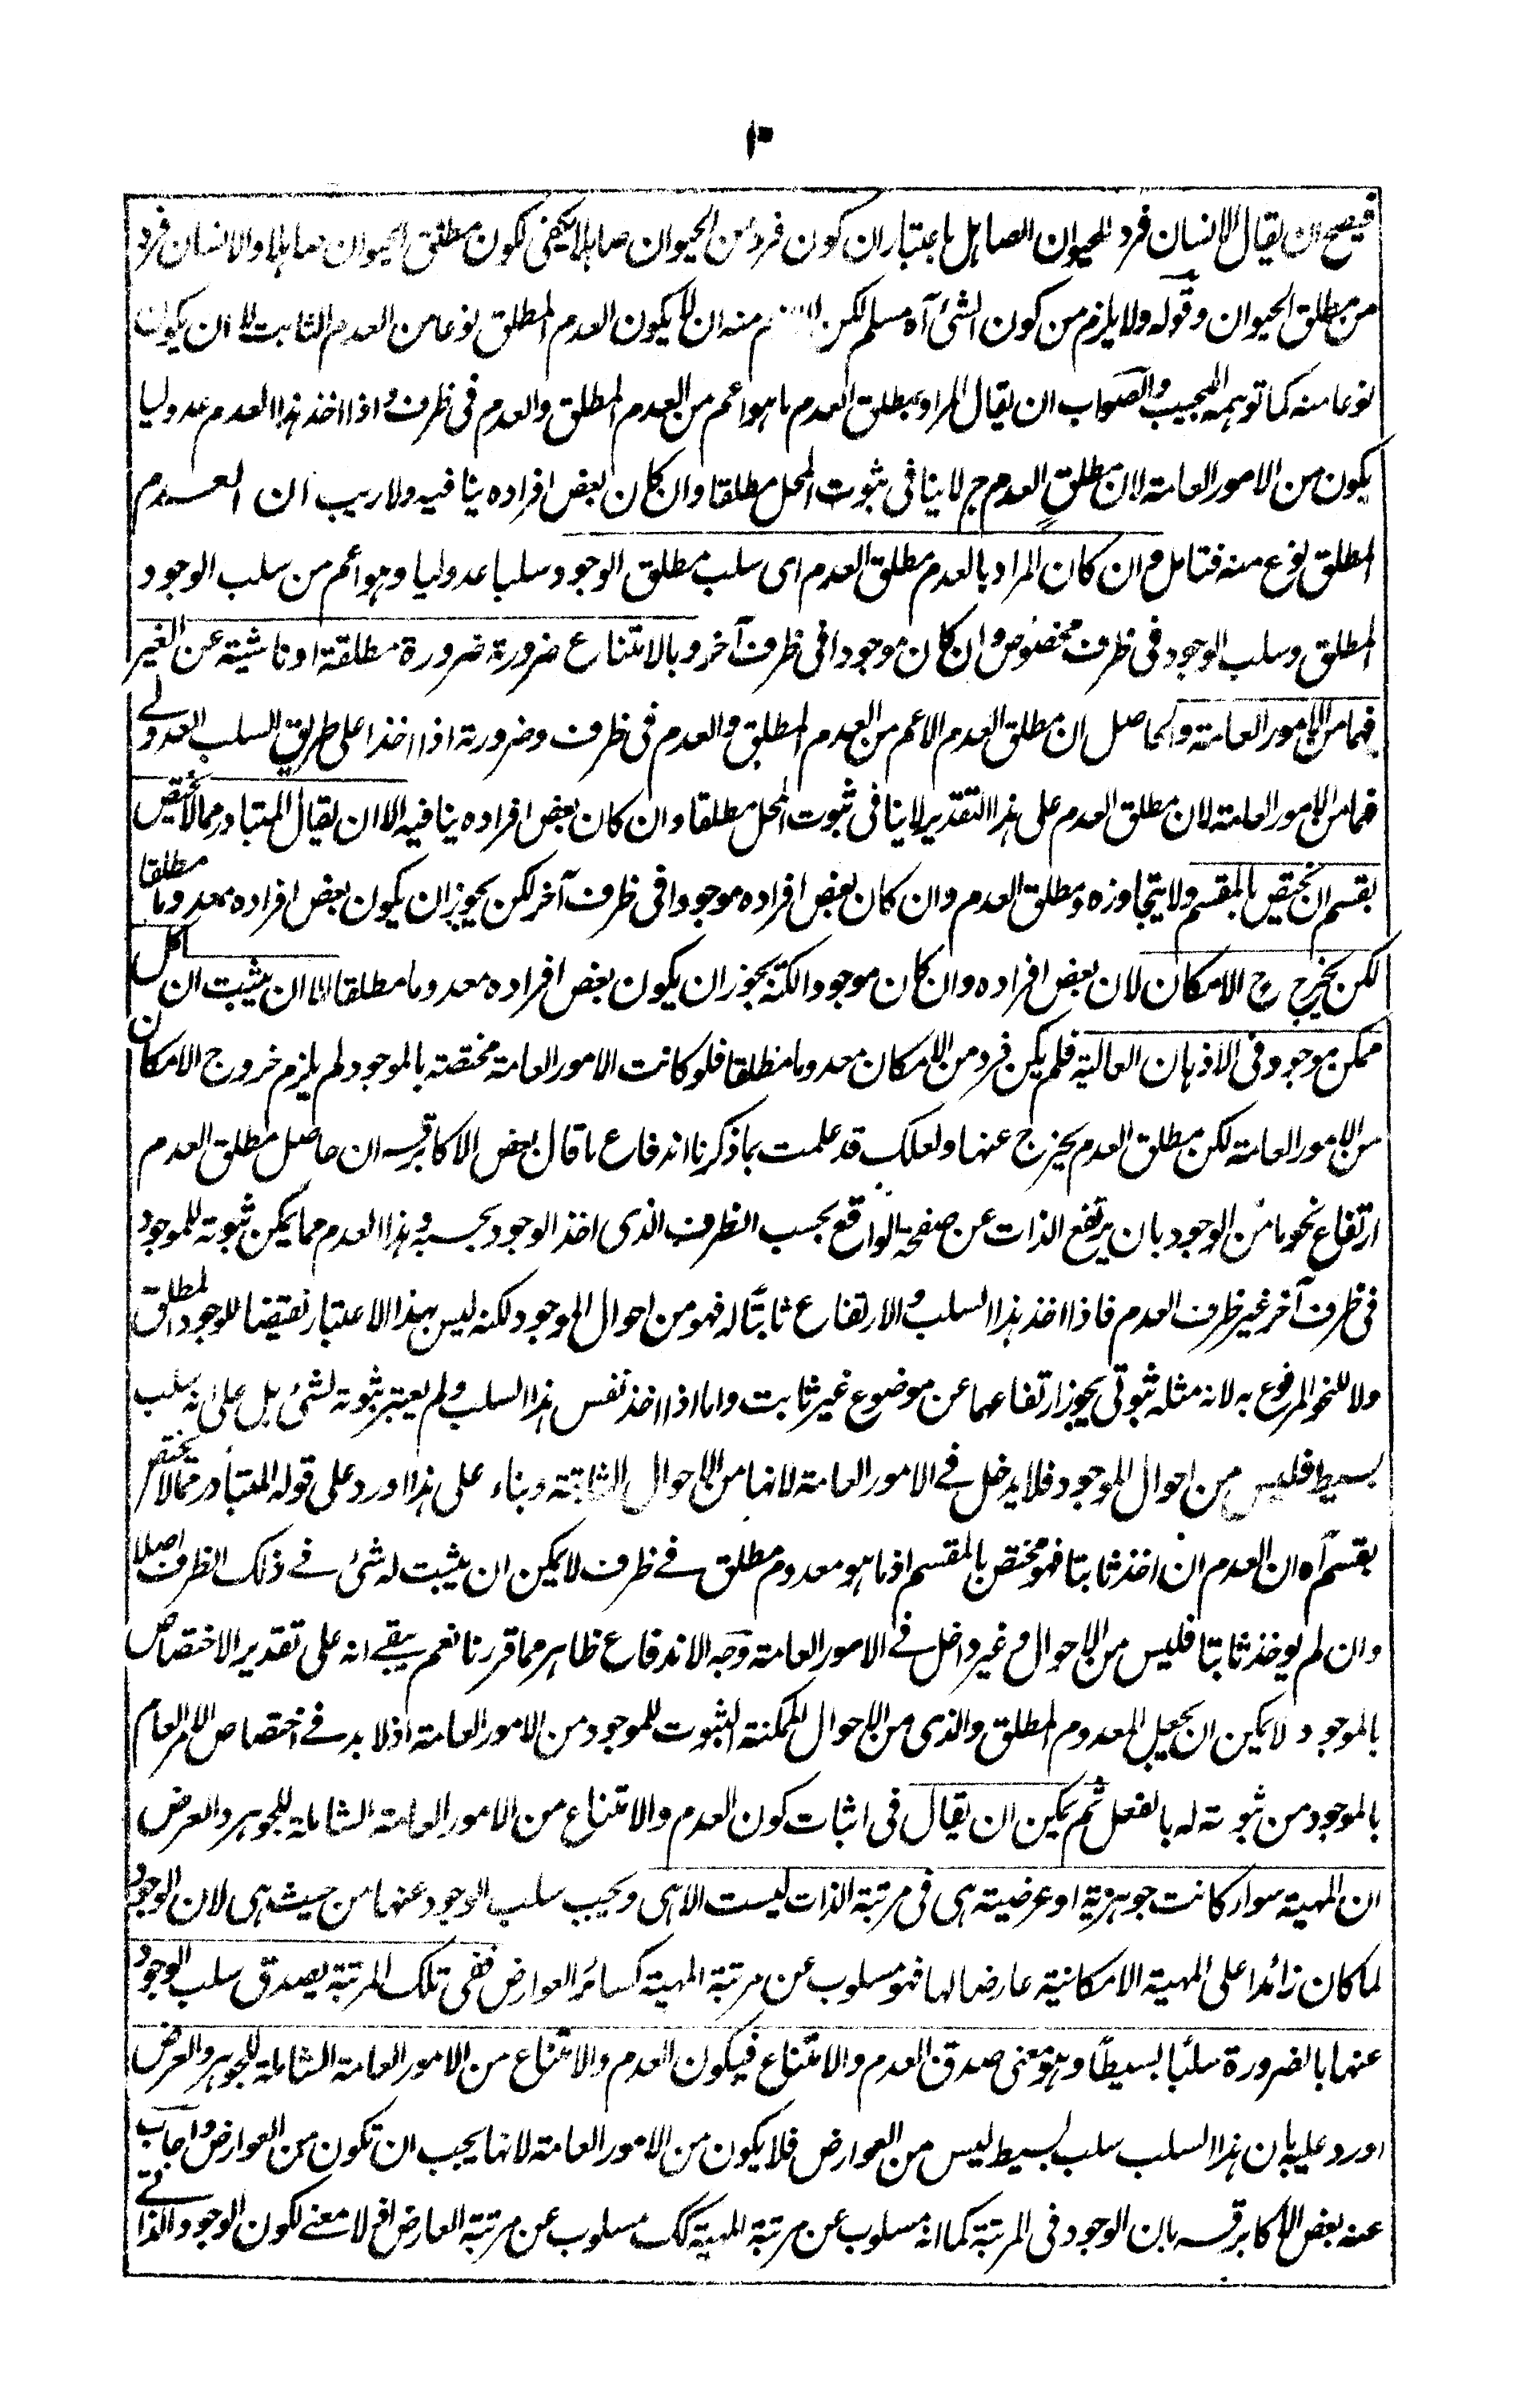 ١٠
فيصح ان يقال الانسان فرد للحيوان الصاهل باعتبار ان كون فرد من الحيوان صاهلا يكفى لكون مطلق الحيوان صاهلا والانسان فرد
من مطلق الحيوان وقوله ولا يلزم من كون الشئ آه مسلم لكن منه ان لا يكون العدم المطلق نوعا من العدم الثابت لا ان يكون
نوعا منه كما توهمه المجيب والصواب ان يقال المراد بمطلق العدم ما هو اعم من العدم المطلق والعدم فى ظرف واذا اخذ هذا العدم عدوليا
يكون من الامور العامة لان مطلق العدم ح لا ينافى ثبوت المحل مطلقا وان كان بعض افراده ينافيه ولا ريب ان العدم
المطلق نوع منه فتامل وان كان المراد بالعدم مطلق العدم اى سلب مطلق الوجود سلبا عدوليا وهو اعم من سلب الوجود
المطلق وسلب الوجود فى ظرف مخصوص وان كان موجودا فى ظرف آخر وبالامتناع ضرورته ضرورة مطلقة او ناشية عن الغير
فهما من الامور العامة والحاصل ان مطلق العدم الاعم من العدم المطلق والعدم فى ظرف وضرورته اذا اخذا على طريق السلب العدولى
فهما من الامور العامة لان مطلق العدم على هذا التقدير لا ينافى ثبوت المحل مطلقا وان كان بعض افراده ينافيه الا ان يقال المتبادر مما لا يختص
بقسم ان يختص بالمقسم ولا يتجاوزه ومطلق العدم وان كان بعض افراده موجودا فى ظرف آخر لكن يجوز ان يكون بعض افراده معدوما مطلقا
لكن يخرج ح الامكان لان بعض افراده وان كان موجودا لكنه يجوز ان يكون بعض افراده معدوما مطلقا الا ان يثبت ان كل
ممكن موجود فى الاذهان العالية فلم يكن فرد من الامكان معدوما مطلقا فلو كانت الامور العامة مختصة بالموجود لم يلزم خروج الامكان
من الامور العامة لكن مطلق العدم يخرج عنها ولعلك قد علمت بما ذكرنا اندفاع ما قال بعض الاكابر قسه ان حاصل مطلق العدم
ارتفاع نحو ما من الوجود بان يرتفع الذات عن صفحة الواقع بحسب الظرف الذى اخذ الوجود بحسبه وهذا العدم مما يمكن ثبوته للموجود
فى ظرف آخر غير ظرف العدم فاذا اخذ هذا السلب والارتفاع ثابتا له فهو من احوال الموجود لكنه ليس بهذا الاعتبار نقيضا للوجود المطلق
ولا للنحو المرفوع به لانه مثله ثبوتى يجوز ارتفاعهما عن موضوع غير ثابت واما اذا اخذ نفس هذا السلب ولم يعتبر ثبوته لشئ بل على انه سلب
بسيط فليس من احوال الموجود فلا يدخل فى الامور العامة لانها من الاحوال الثابتة وبناء على هذا اورد على قوله المتبادر مما لا يختص
بقسم آه ان العدم ان اخذ ثابتا فهو مختص بالمقسم اذ ما هو معدوم مطلق فى ظرف لا يمكن ان يثبت له شئ فى ذلك الظرف اصلا
وان لم يوخذ ثابتا فليس من الاحوال وغير داخل فى الامور العامة وجه الاندفاع ظاهر مما قررنا نعم يبقى انه على تقدير الاختصاص
بالموجود لا يمكن ان يجعل المعدوم المطلق والذى من الاحوال الممكنة الثبوت للموجود من الامور العامة اذ لا بد فى اختصاص الامر العام
بالموجود من ثبوته له بالفعل ثم يمكن ان يقال فى اثبات كون العدم والامتناع من الامور العامة الشاملة للجوهر والعرض
ان المهية سواء كانت جوهرية او عرضية هى فى مرتبة الذات ليست الا هى ويجب سلب الوجود عنها من حيث هى لان الوجود
لما كان زائدا على المهية الامكانية عارضا لها فهو مسلوب عن مرتبة المهية كسائر العوارض ففى تلك المرتبة يصدق سلب الوجود
عنها بالضرورة سلبا بسيطا وهو معنى صدق العدم والامتناع فيكون العدم والامتناع من الامور العامة الشاملة للجوهر والعرض
اورد عليه بان هذا السلب سلب بسيط ليس من العوارض فلا يكون من الامور العامة لانها يجب ان تكون من العوارض واجاب
عنه بعض الاكابر قسه بان الوجود فى المرتبة كما انه مسلوب عن مرتبة المهية كك مسلوب عن مرتبة العارض اذ لا معنى لكون الوجود الذاتى